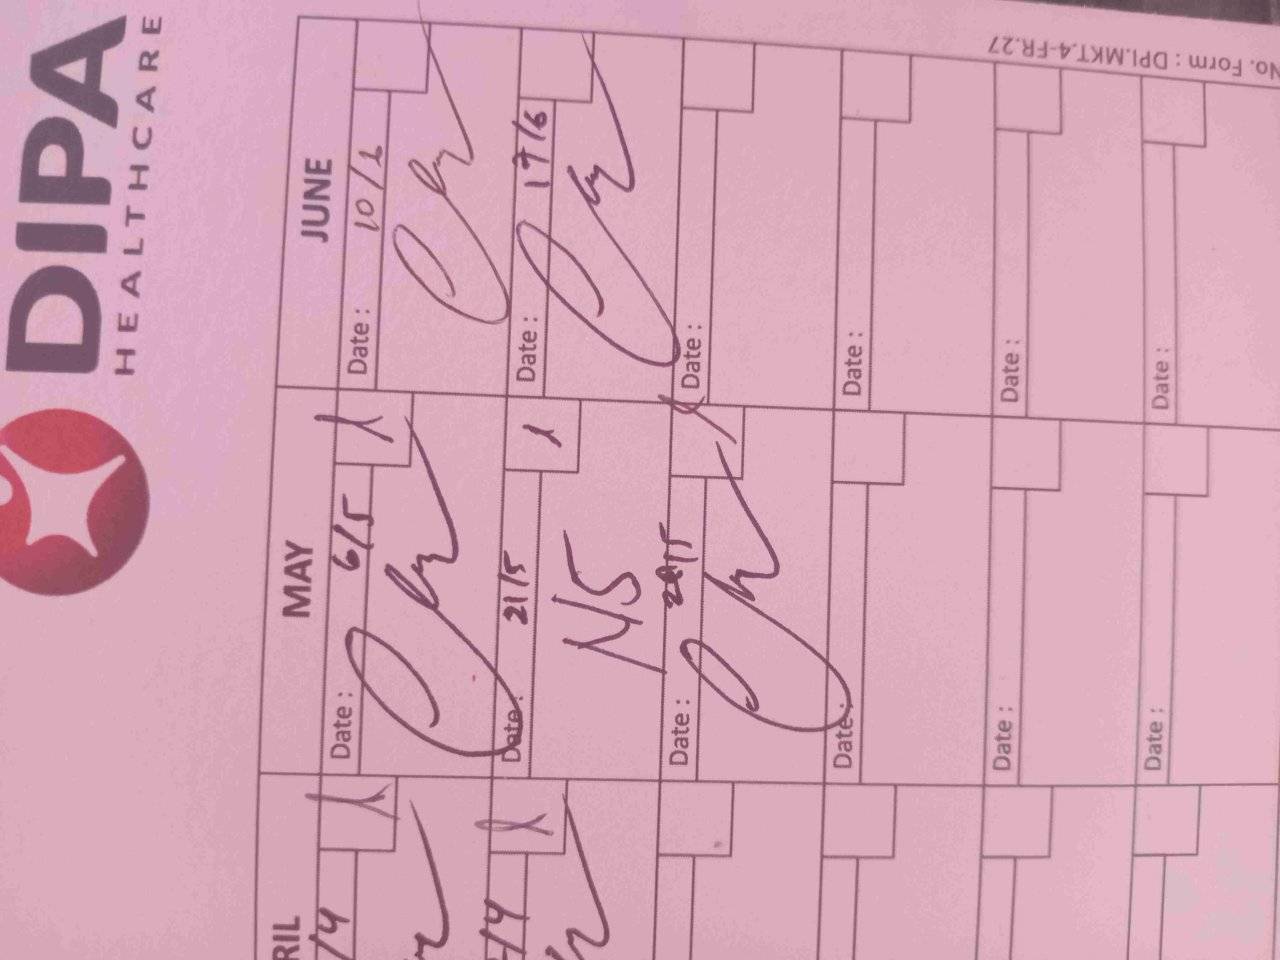 DIPA
HEALTHCARE
No. Form : DPI.MKT.4-FR.27
RIL
MAY
JUNE
/4
Date : 6/5
Date : 10/
/4
Date : 21/5
N/5
Date : 17/6
Date : 28/5
Date :
Date :
Date :
Date :
Date :
Date :
Date :